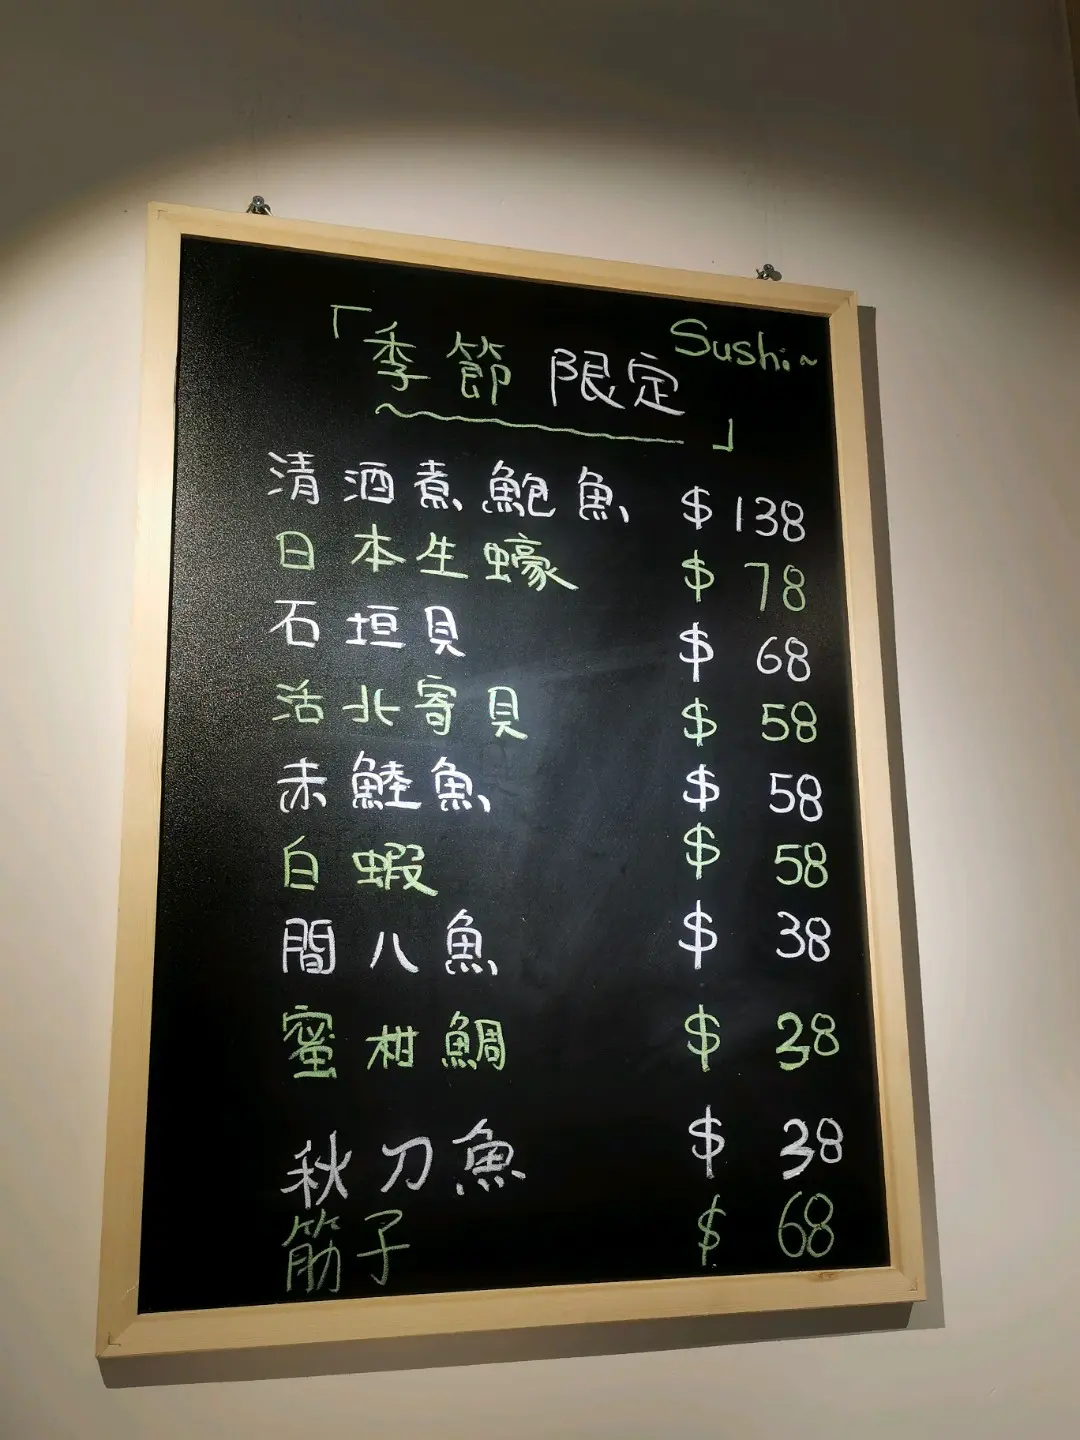 「季節限定」 Sushi~
清酒煮鮑魚 $138
日本生蠔 $78
石垣貝 $68
活北寄貝 $58
赤鯥魚 $58
白蝦 $58
間八魚 $38
蜜柑鯛 $38
秋刀魚 $38
筋子 $68